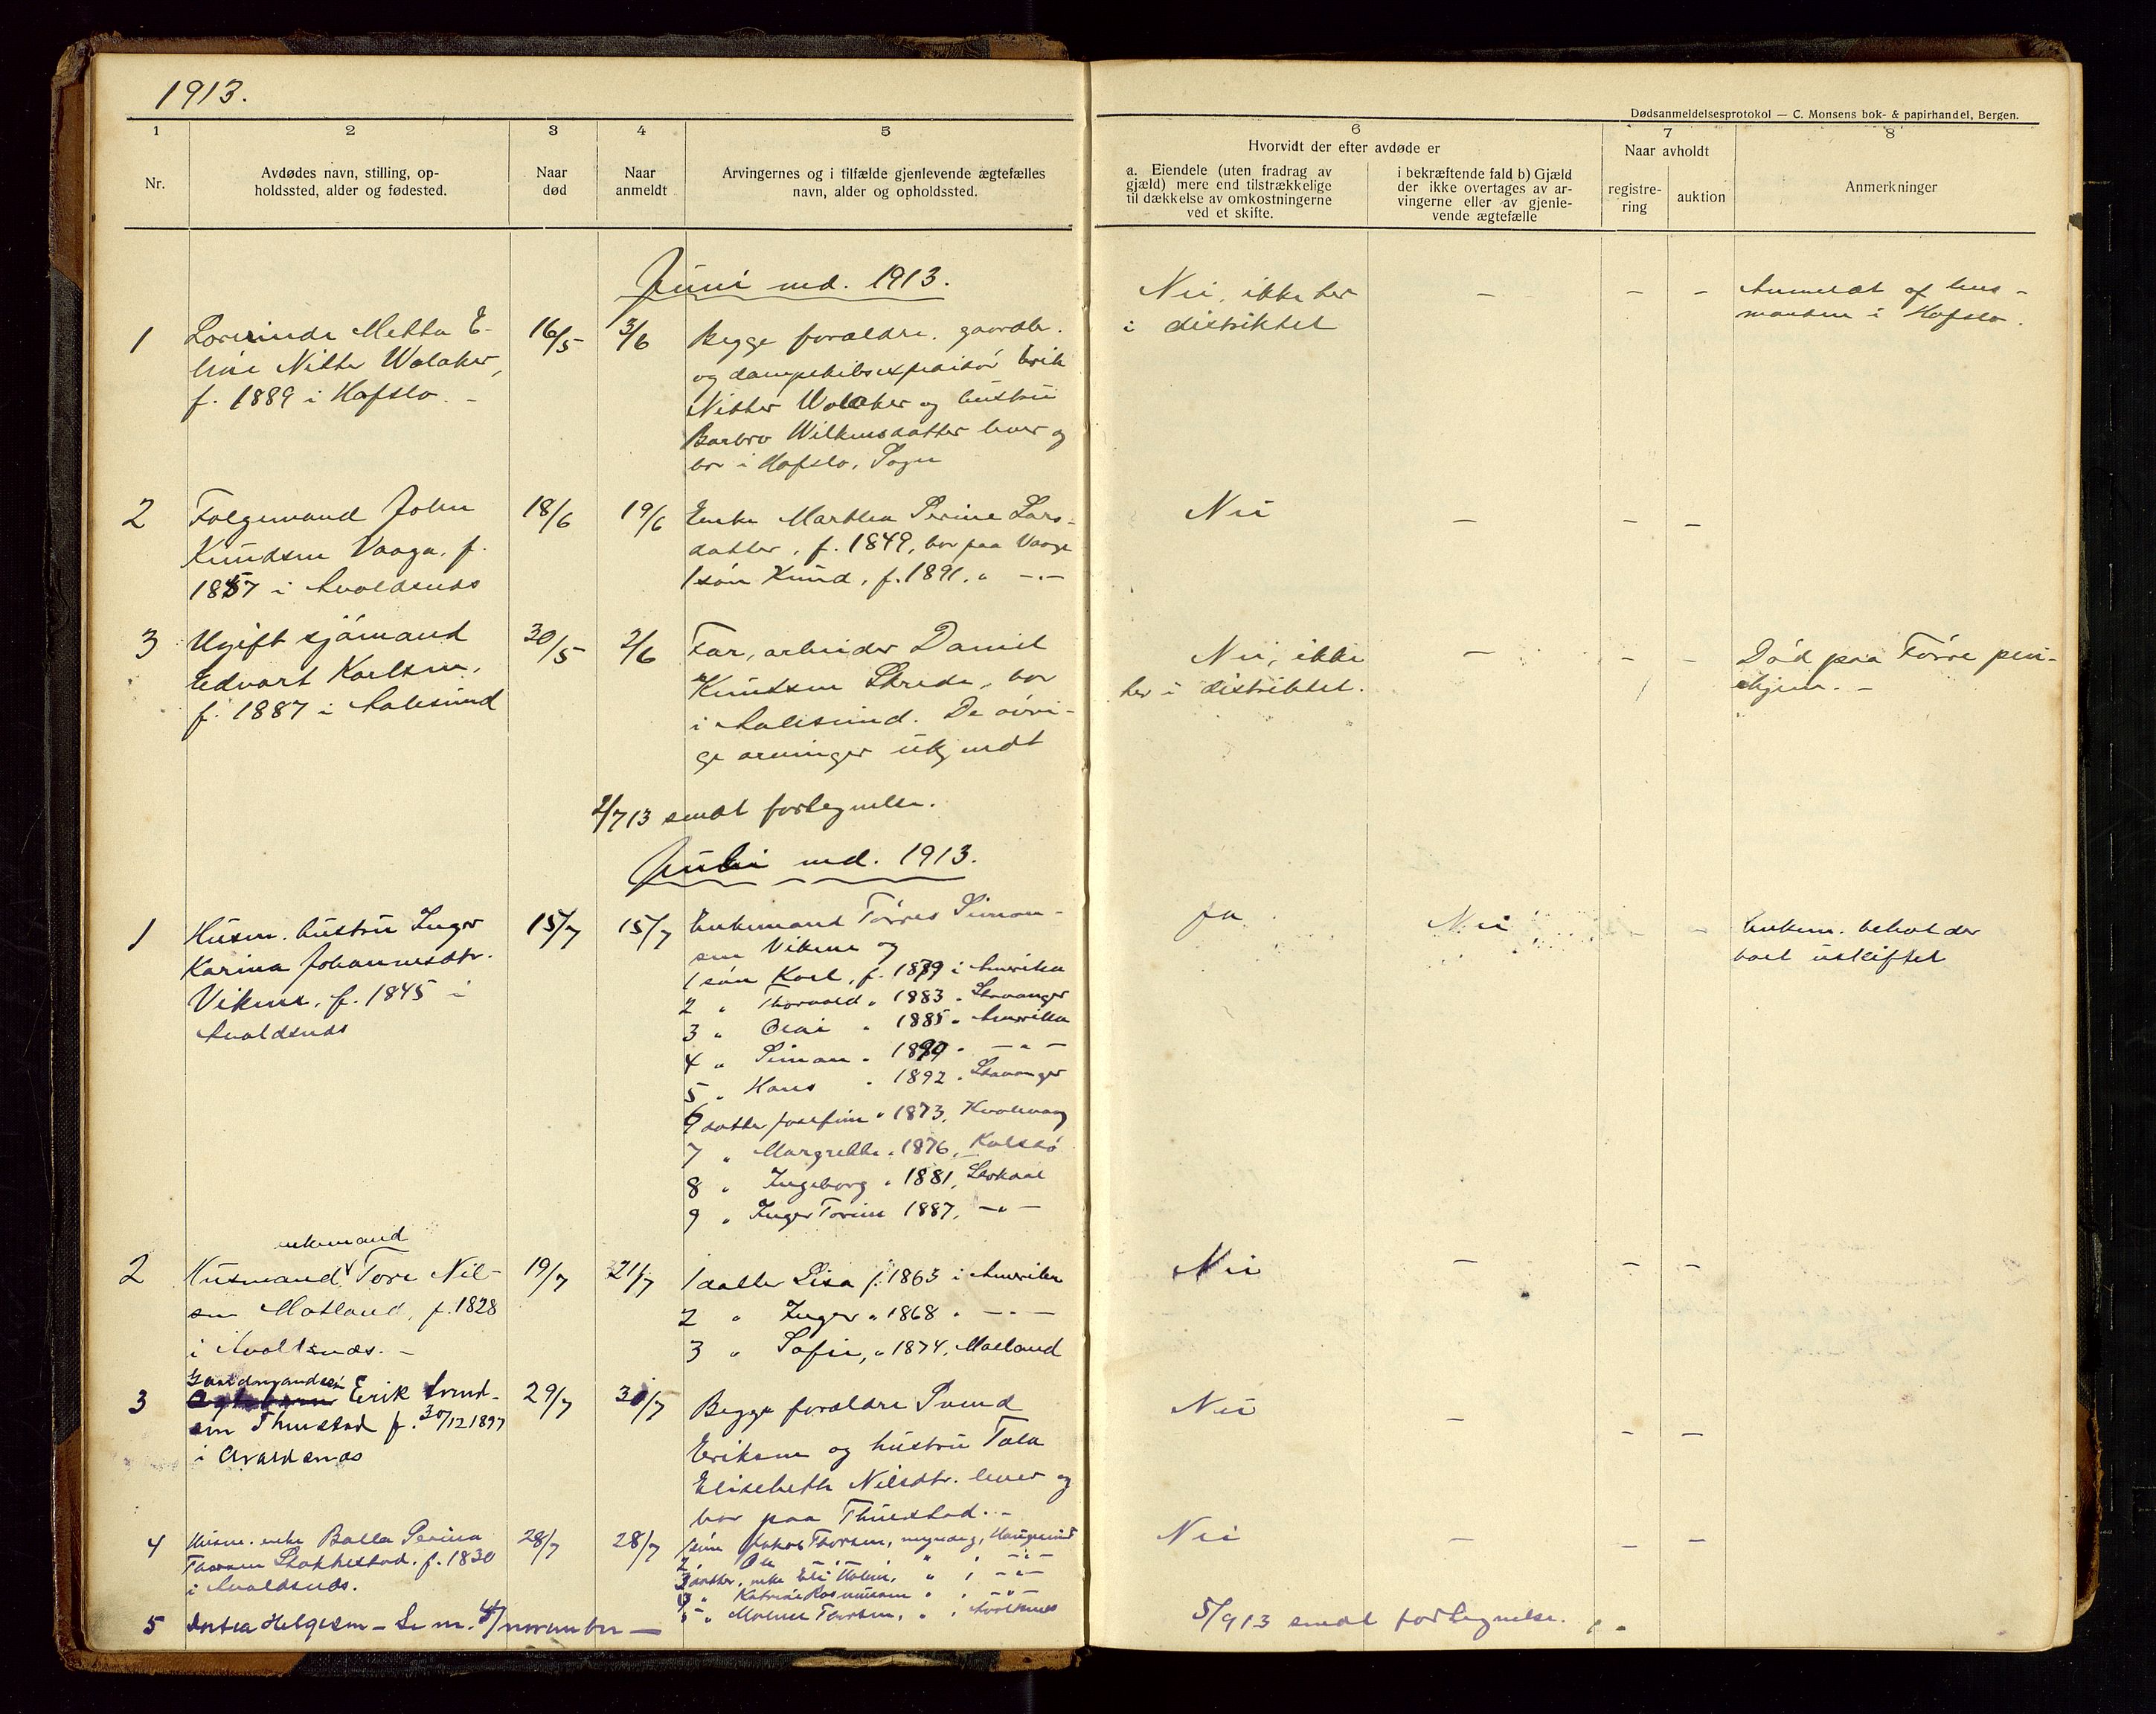 1913.
Dødsanmeldelsesprotokol — C. Monsens bok- & papirhandel, Bergen.
1 2 3 4 5 6 7 8
Nr.
Avdødes navn, stilling, op-
holdssted, alder og fødested.
Naar
død
Naar
anmeldt
Arvingernes og i tilfælde gjenlevende ægtefælles
navn, alder og opholdssted.
Hvorvidt der efter avdøde er
a. Eiendele (uten fradrag av
gjæld) mere end tilstrækkelige
til dækkelse av omkostningerne
ved et skifte.
i bekræftende fald b) Gjæld
der ikke overtages av ar-
vingerne eller av gjenle-
vende ægtefælle
Naar avholdt
registre-
ring
auktion
Anmerkninger
Juni md. 1913.
1
Lærerinde Metta E-
line Nitter Walaker,
f. 1889 i Hafslo. -
16/5
3/6
Begge forældre, gaardbr.
og dampskibsexpeditör Erik
Nitter Walaker og hustru
Barbro Wilkensdatter lever og
bor i Hafslo, Sogn
Nei, ikke her
i distriktet
-
-
-
Anmeldt af lens-
manden i Hafslo.
2
Folgemand John
Knudsen Vaaga, f.
1847 i Avaldsnes
18/6
19/6
Enke Marthea Serine Lars-
datter, f. 1849, bor paa Vaage
1 sön Knud, f. 1891. " -"-
Nei
-
-
-
3
Ugift sjömand
Edvart Karlsen,
f. 1887 i Aalesund
30/5
2/6
Far, arbeider Daniel
Knutsen Skrede, bor
i Aalesund. De övri-
ge arvinger ukjendt
Nei, ikke
her i distriktet.
-
-
-
Död paa Förre plei-
ehjem. -
2/7 13 sendt fortegnelse.
Juli md. 1913.
1
Husm. hustru Inger
Karina Johannesdtr.
Vikene, f. 1845 i
Avaldsnes
15/7
15/7
Enkemand Törres Simon-
sen Vikene og
1 sön Karl, f. 1879 i Amerika
2 " Thorvald " 1883 " Stavanger
3 " Olai " 1885 " Amerika
4 " Simon " 1890 " -"-
5 " Hans " 1892 " Stavanger
6 datter Josefine " 1873, Kvalevaag
7 " Margrethe " 1876, Kolstö
8 " Ingeborg " 1881, Stokdal
9 " Inger Torine 1887, -"-
Ja
Nei
-
-
Enkem. beholder
boet uskiftet
2
enkemand
Husmand Tore Nil-
sen Matland, f. 1828
i Avaldsnæs. -
19/7
21/7
1 datter Lisa f. 1863 i Amerika
2 " Inger " 1868 " -"-
3 " Sofie, " 1874, Matland
Nei
-
-
-
3
Gaardmandssön
Erik Svend-
sen Thuestad f. 30/12 1897
i Avaldsnæs
29/7
30/7
Begge forældre Svend
Eriksen og hustru Tala
Elisebeth Nilsdtr. lever og
bor paa Thuestad. -
Nei
-
-
-
4
Husm. enke Balla Serina
Thorsen Stakkestad, f. 1830
i Avaldsnes.
28/7
28/7
1 sön Jakob Thorsen, myndig, Haugesund
2 " Ole -"- " , -"-
3 datter, enke Eli , " , -"-
4 " Katrine Rasmussen " , -"-
5 " Malene Thorsen, " , Avaldsnes
Nei
-
-
-
5
Antea Helgesen - Se nr. 4/november -
5/9 13 sendt fortegnelse.